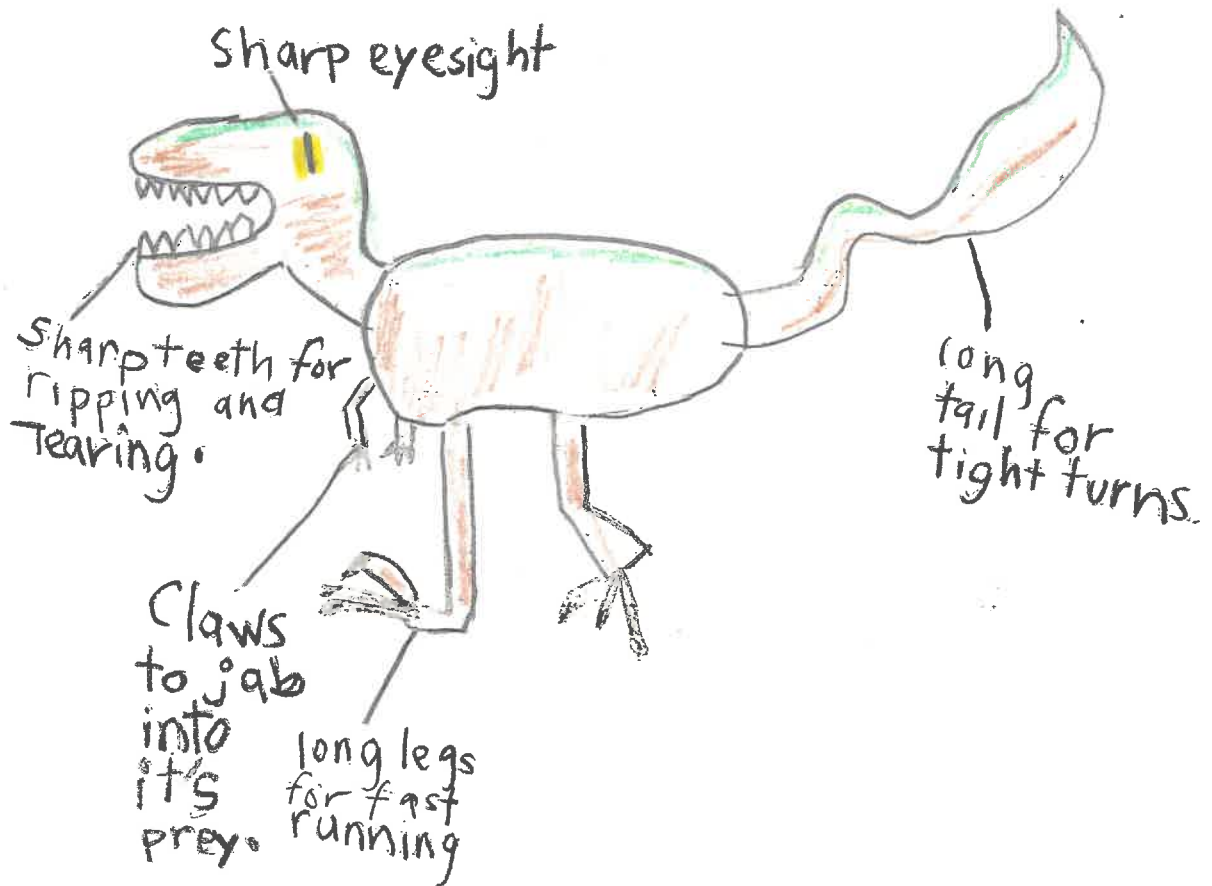 Sharp eyesight
Sharp teeth for
ripping and
Tearing.
long
tail for
tight turns.
Claws
to jab
into
it's
prey.
long legs
for fast
running